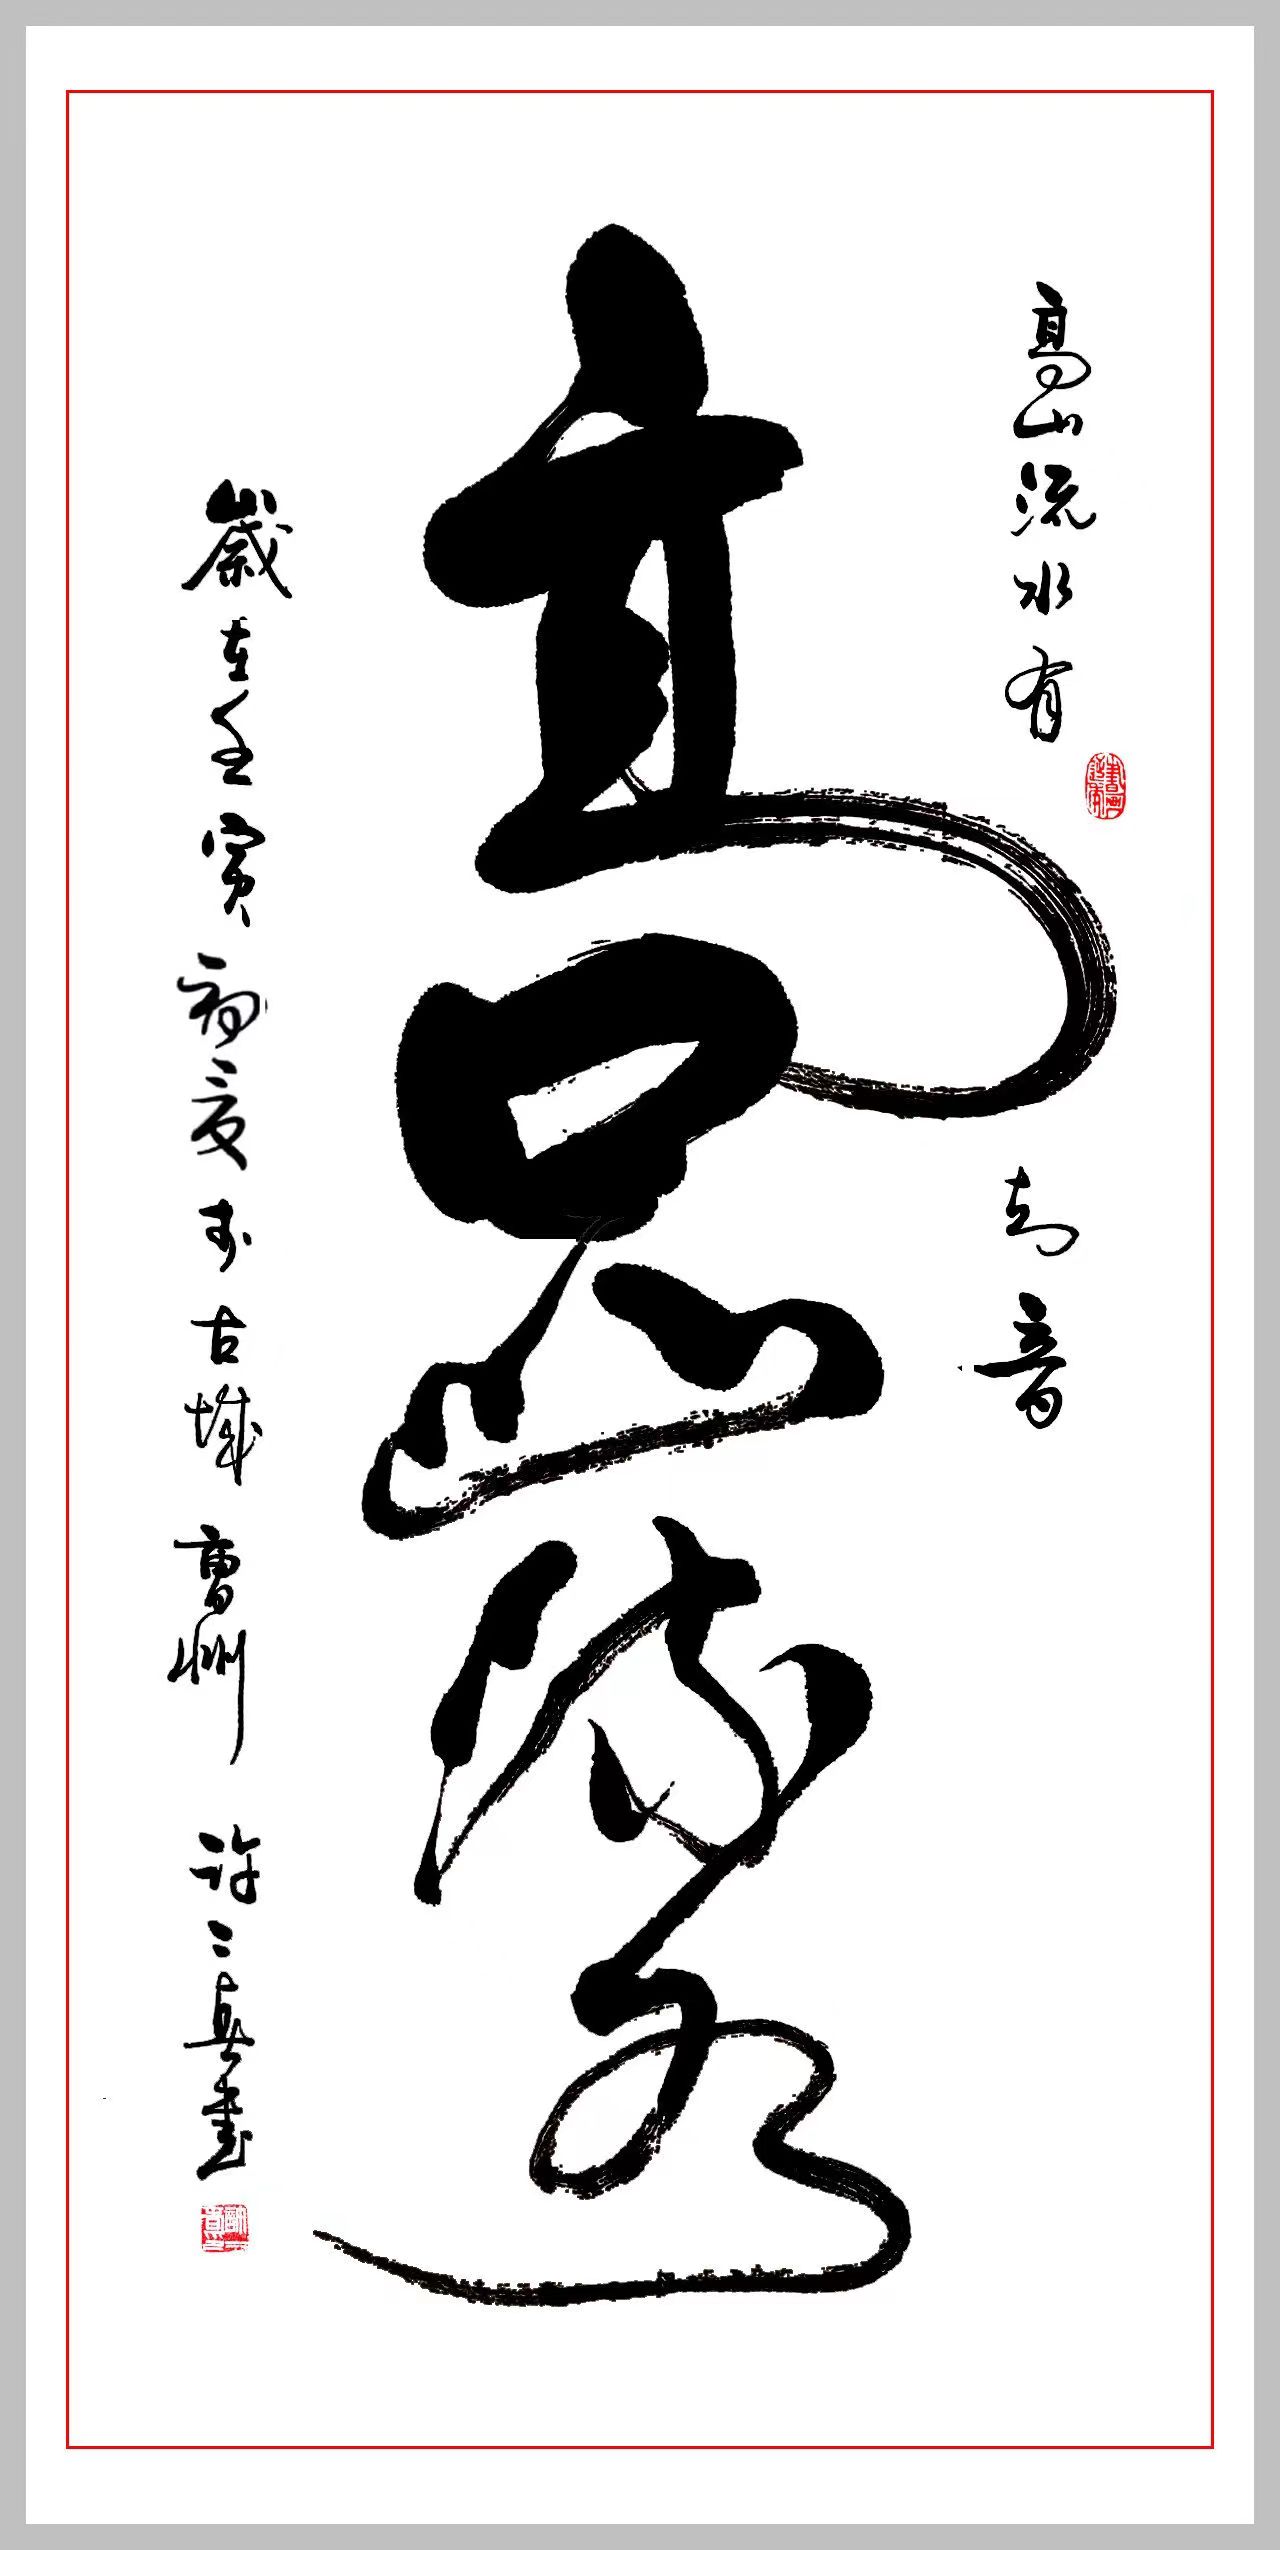 高山流水有
知音
高山流水
歲在壬寅初夏於古城曹州許三真書